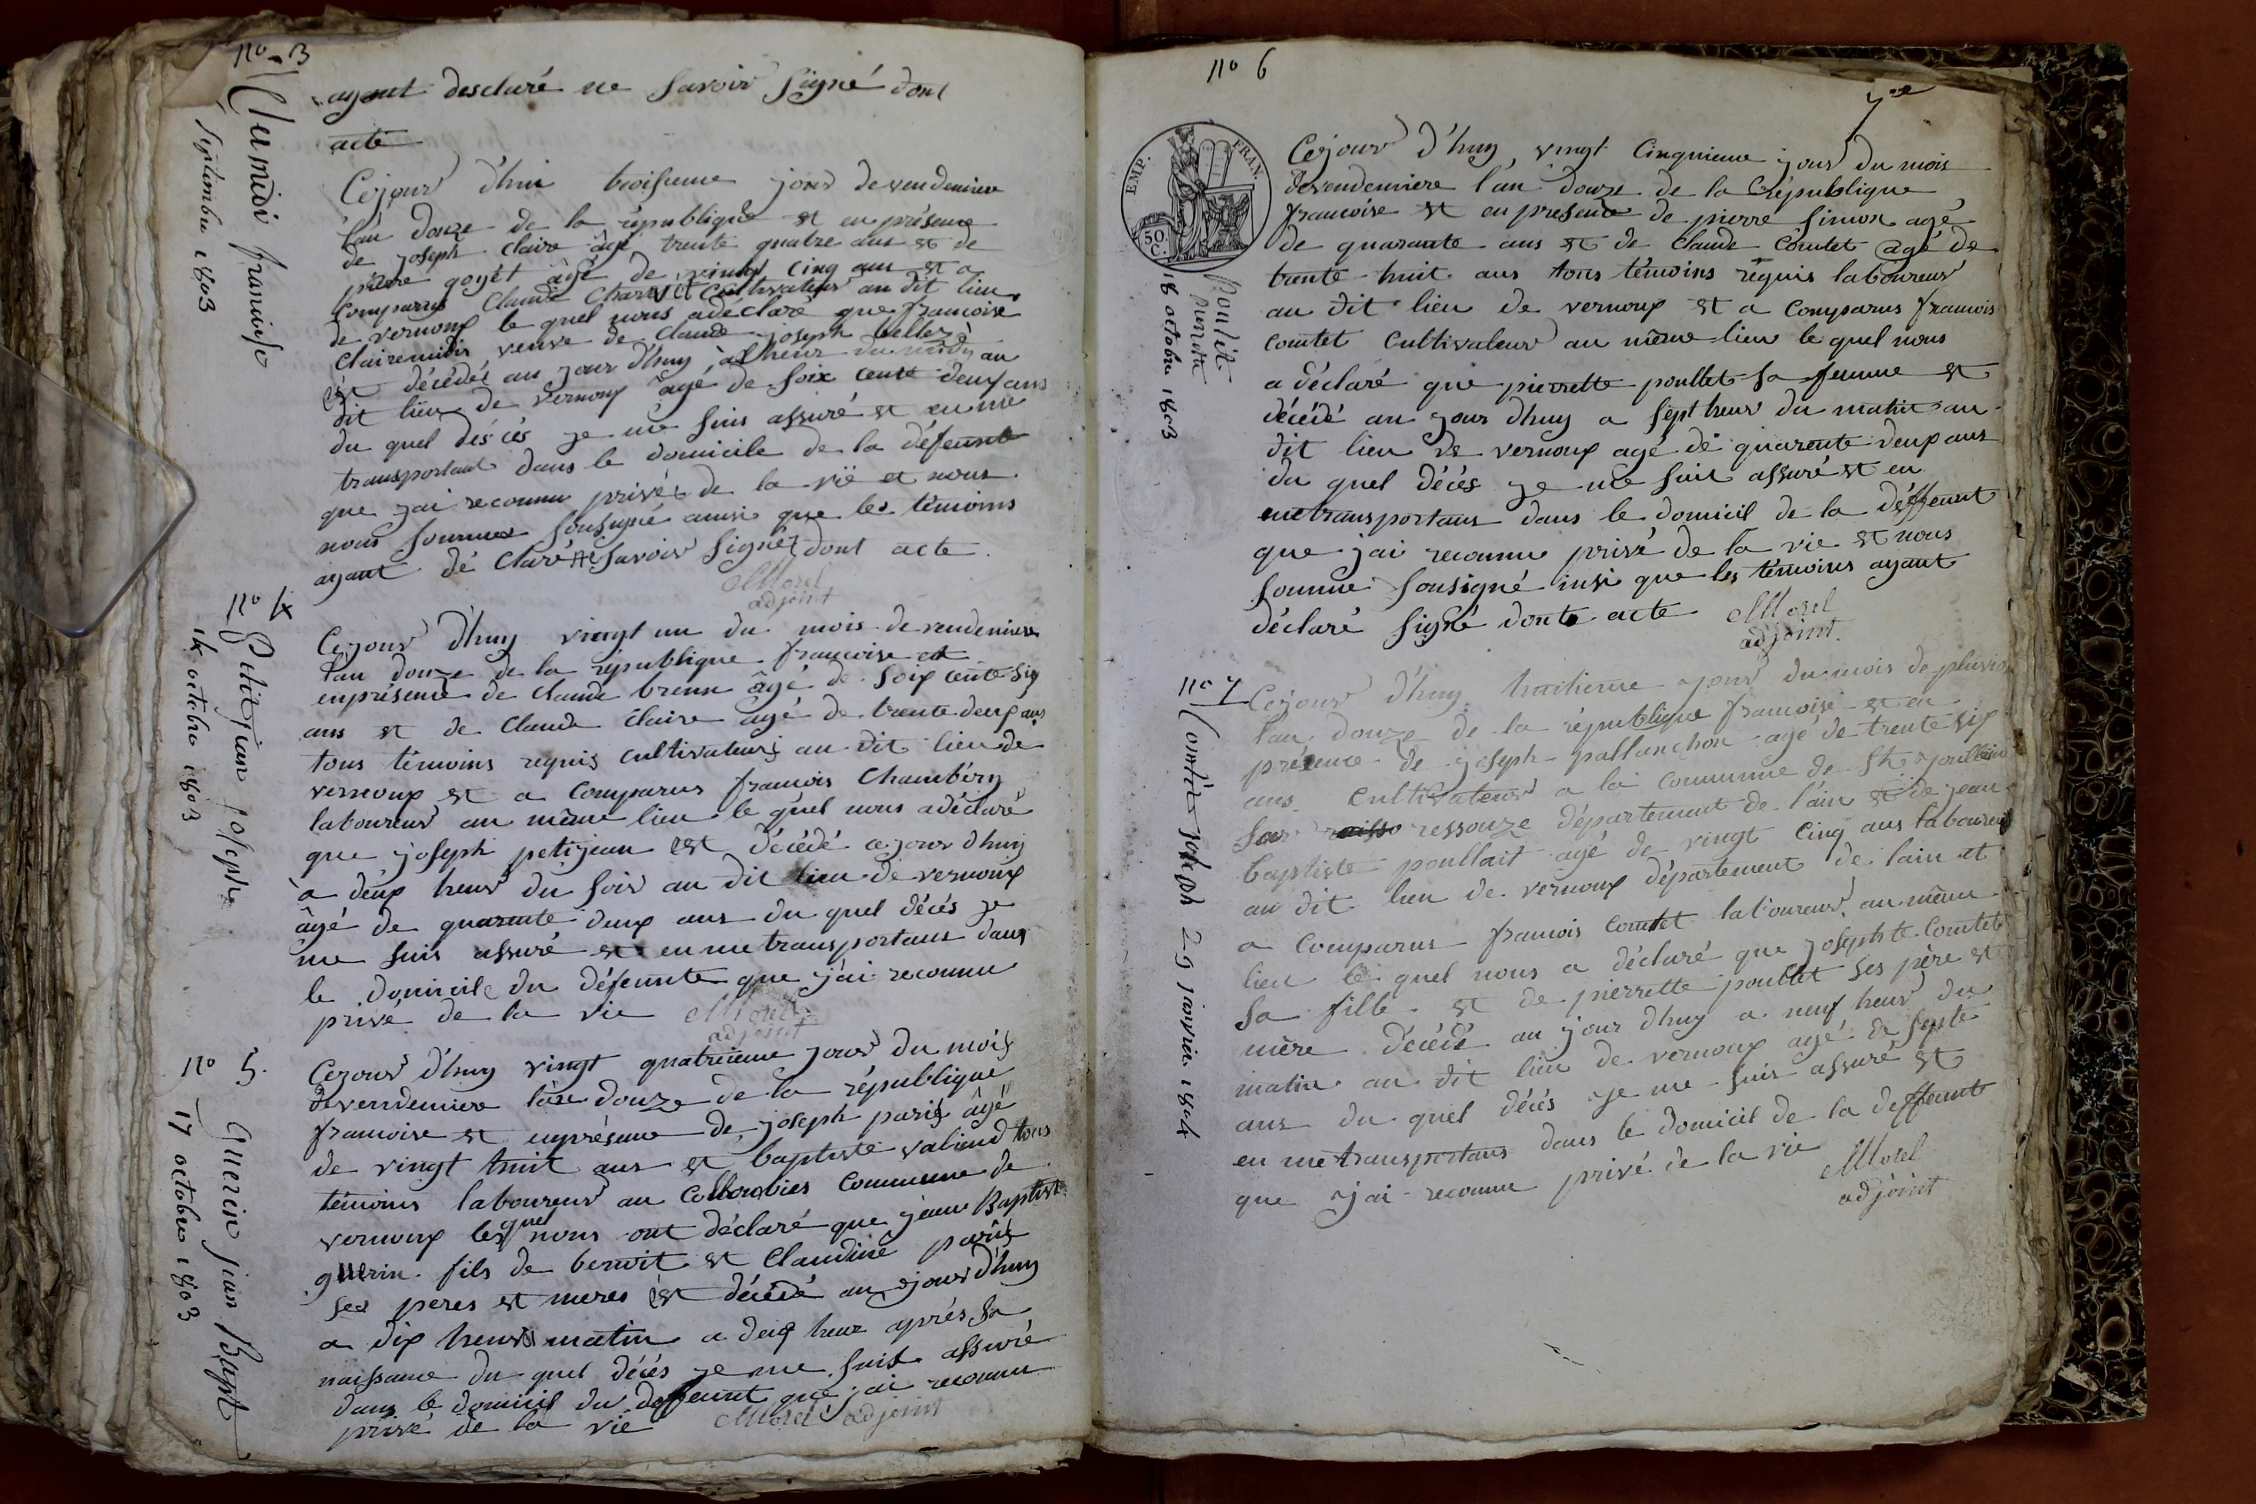 no 3
Clumidi françoise
septembre 1803
ayant desclaré ne savoir signé dont
acte
Cejour d'hui troisieme jour de vendemiere
l'an douze de la république et en présence
de joseph claire agé trente quatre ans et de
pierre goyit âgé de vingt cinq ans et a
comparus Claude Charvet cultivateur au dit lieu
de vernoux le quel nous a déclaré que francoise
clairemidis veuve de claude joseph bellezé
est décédéé au jour d'huy à l'heur du midy au
dit lieu de vernoux agé de soix cente deux ans
du quel déscés je me suis assuré et en me
transportant dans le domicile de la défeunte
que jai reconnu privéé de la vië et nous
nous sommes sousigné ainsi que les témoins
ayant dé claré ne savoir signéz dont acte.
Morel
adjoint
no 4
Petitjean joseph
14 octobre 1803
Cejour d'huy vingt un du mois de vendemiere
l'an douze de la république francoise et
enprésence de claude brenu âgé de soix cente six
ans et de Claude claire âgé de trente deux ans
tous témoins requis cultivateurs au dit lieu de
vernoux et a comparus francois Chambéry
laboureur au même lieu le quel nous a déclaré
que joseph petijean est décédé ce jour d'huy
à deux heur du soir au dit lieu de vernoux
âgé de quarante deux ans du quel décés je
me suis assuré et en me transportans dans
le domicile du défeunte que j'ai reconnu
privé de la vie Morel
adjoint
no 5.
Guerin jean Bapt
17 octobre 1803
Cejour d'huy vingt quatrieme jour du mois
devendemiere l'an douze de la république
francoise et enprésence de joseph paris âgé
de vingt huit ans et baptiste valiend tous
témoins laboureur au Collombies commune de
vernoux les quel nous ont déclaré que jean Baptiste
guerin fils de benoit et Claudine paris
ses peres et meres est décédé au jour d'huy
a dix heurs matin a deux heur aprés sa
naissance du quel décés je me suis assuré
dans le domicil du deffeunt que jai reconnu
privé de la vie Morel adjoint
no 6
7me
EMP. FRAN.
50. C.
Poullet
pierrette
18 octobre 1803
Cejour d'huy vingt cinquieme jour du mois
devendemiere l'an douze de la république
francoise et en presence de pierre simon agé
de quarante ans et de claude comtet agé de
trente huit ans tous témoins réquis laboureur
au dit lieu de vernoux et a comparus francois
comtet cultivateur au même lieu le quel nous
a déclaré que pierrette poullet sa femme et
décédé au jour d'huy a sept heur du matin au
dit lieu de vernoux agé de quarente deux ans
du quel décés je me suit assuré et en
metransportans dans le domicil de la déffeunt
que jai reconnu privé de la vie et nous
somme sousigné insi que les témoins ayant
déclaré signé donte acte Morel
adjoint.
no 7
Comtet joseph 29 janvier 1804
Cejour d'huy huitieme jour du mois de pluvio
l'an douze de la république francoise et en
présence de joseph pallanchon agé de trente six
ans cultivateur a la commune de St jullien
sur ressouze département de l'ain et de jean
baptiste poullait agé de vingt cinq ans laboureur
au dit lieu de vernoux département de lain et
a comparus francois comtet laboureur au même
lieu le quel nous a déclaré que josephte comtet
sa fille et de pierrette poullet ses père et
mère décédé au jour d'huy a neuf heur du
matin au dit lieu de vernoux agé de septe
ans du quel décés je me suis assuré et
en metransportans dans le domicil de la deffeunt
que jai reconnu privé de la vie
Morel
adjoint